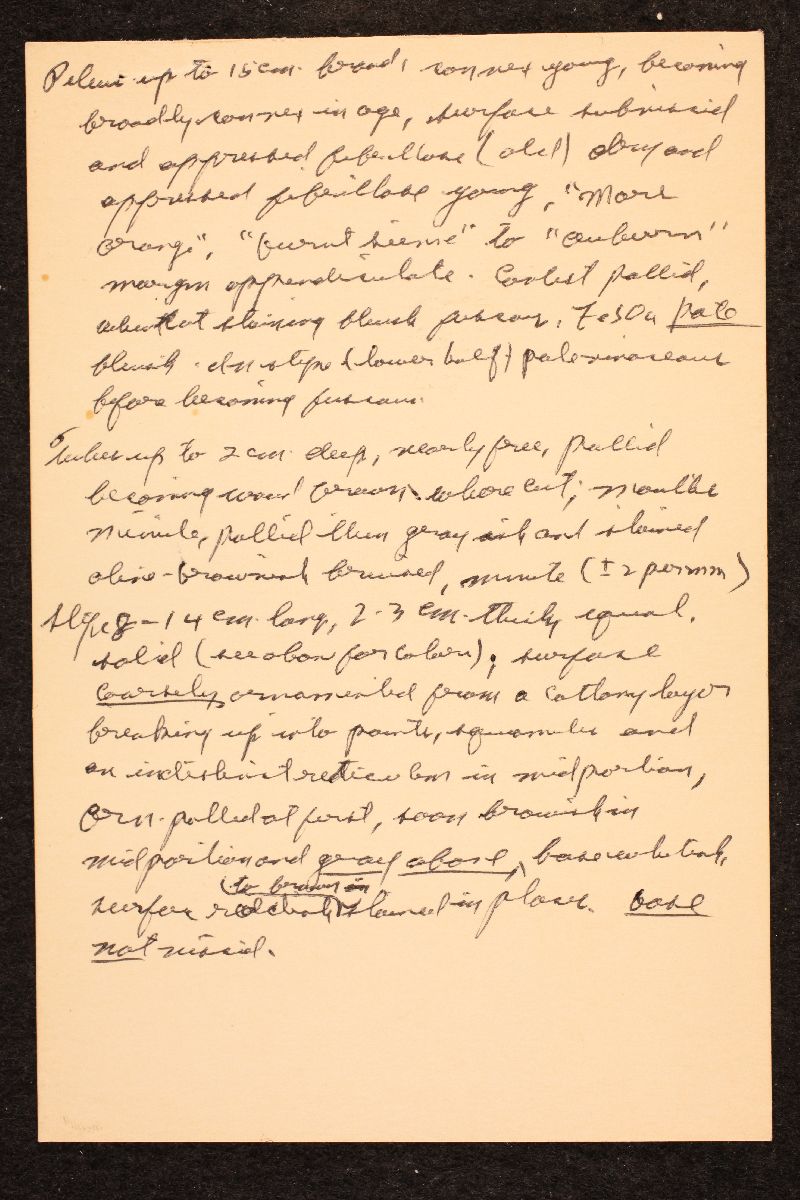 Pileus up to 15 cm. broad, convex young, becoming
broadly convex in age, surface subviscid
and appressed fibrillose (old) dry and
appressed fibrillose young, "Mars
orange", "burnt sienna" to "auburn"
margin appendiculate. Context pallid,
when cut staining bluish fuscous, FeSO4 pale
bluish. In stipe (lower half) pale vinaceous
before becoming fuscous.
Tubes up to 2 cm. deep, nearly free, pallid
becoming wood brown where cut; mouths
minute, pallid then grayish and stained
olive-brownish bruised, minute (± 2 per mm)
Stipe 8-14 cm. long, 2-3 cm. thick, equal,
solid (see above for color); surface
coarsely ornamented from a cottony layer
breaking up into points, squamules and
an indistinct reticulum in midportion,
orn. pallid at first, soon brownish in
midportion and gray above, base whitish,
(to brown in
surface reddish stained in places. base
not viscid.